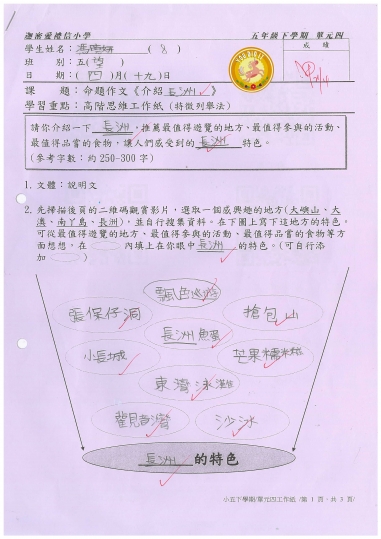 迦密愛禮信小學 五年級下學期 單元四
學生姓名：( 8 )
班 別：五( 望 )
日 期：( 四 )月( 十九 )日
成 績
課 題：命題作文《介紹 長洲 》
學習重點：高階思維工作紙 (特徵列舉法)
請你介紹一下 長洲 ，推薦最值得遊覽的地方、最值得參與的活動、
最值得品嘗的食物，讓人們感受到的 長洲 特色。
(參考字數：約 250-300 字)
1. 文體：說明文
2. 先掃描後頁的二維碼觀賞影片，選取一個感興趣的地方(大嶼山、大
澳、南丫島、長洲)，並自行搜集資料。在下圖上寫下這地方的特色。
可從最值得遊覽的地方、最值得參與的活動、最值得品嘗的食物等方
面想想，在 內填上在你眼中 長洲 的特色。(可自行添
加 )
飄色巡遊
張保仔洞
搶包山
長洲魚蛋
小長城
芒果糯米糍
東灣泳灘
觀音灣
沙冰
長洲 的特色
小五下學期/單元四工作紙 /第 1 頁，共 3 頁/